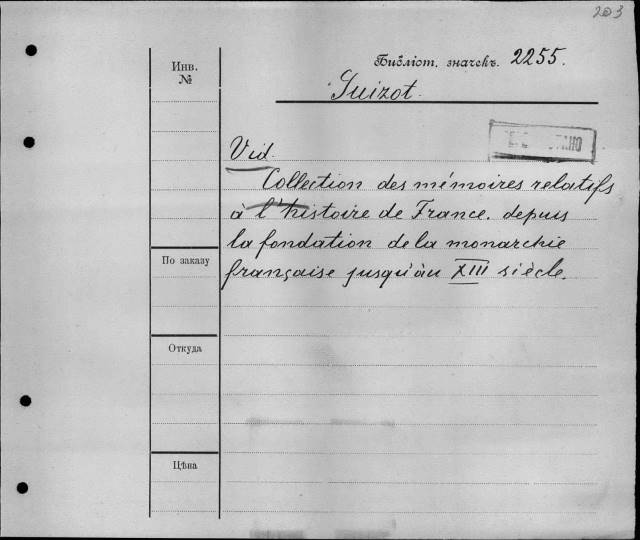 203
Инв.
№
Библіот. значекъ. 2255.
Guizot.
Vid.
Collection des mémoires relatifs
à l'histoire de France. depuis
la fondation de la monarchie
française jusqu'àu XIII siècle.
По заказу
Откуда
Цѣна